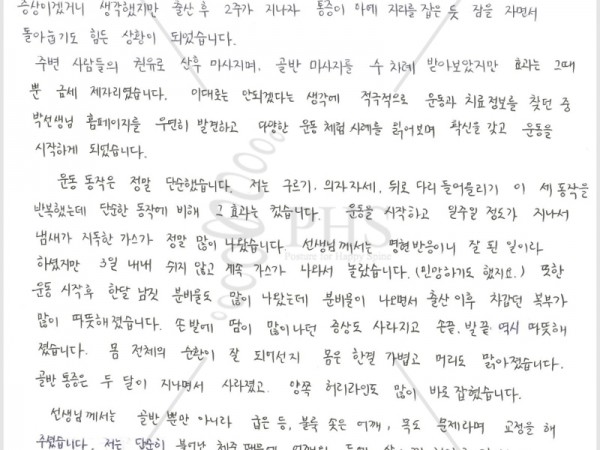 증상이겠거니 생각했지만 출산 후 2주가 지나자 통증이 아예 자리를 잡은 듯 잠을 자면서
돌아눕기도 힘든 상황이 되었습니다.
주변 사람들의 권유로 산후 마사지며, 골반 마사지를 수 차례 받아보았지만 효과는 그때
뿐 금세 제자리였습니다. 이대로는 안되겠다는 생각에 적극적으로 운동과 치료정보를 찾던 중
박선생님 홈페이지를 우연히 발견하고 다양한 운동 체험 사례를 읽어보며 확신을 갖고 운동을
시작하게 되었습니다.
운동 동작은 정말 단순했습니다. 저는 구르기, 의자자세, 뒤로 다리 들어올리기 이 세 동작을
반복했는데 단순한 동작에 비해 그 효과는 컸습니다. 운동을 시작하고 일주일 정도가 지나서
냄새가 지독한 가스가 정말 많이 나왔습니다. 선생님께서는 명현반응이니 잘 된 일이라
하셨지만 3월 내내 쉬지 않고 계속 가스가 나와서 놀랐습니다. (민망하기도 했지요.) 또한
운동 시작 후 한달 남짓 분비물도 많이 나왔는데 분비물이 나오면서 출산 이후 차갑던 복부가
많이 따뜻해졌습니다. 손발에 땀이 많이 나던 증상도 사라지고 손끝, 발끝 역시 따뜻해
졌습니다. 몸 전체의 순환이 잘 되어선지 몸은 한결 가볍고 머리도 맑아졌습니다.
골반 통증은 두 달이 지나면서 사라졌고 양쪽 허리라인도 많이 바로 잡혔습니다.
선생님께서는 골반 뿐만 아니라 굽은 등, 불룩 솟은 어깨, 목도 문제라며 교정을 해
주셨습니다. 저는 단순히
PHS
Posture for Happy Spine